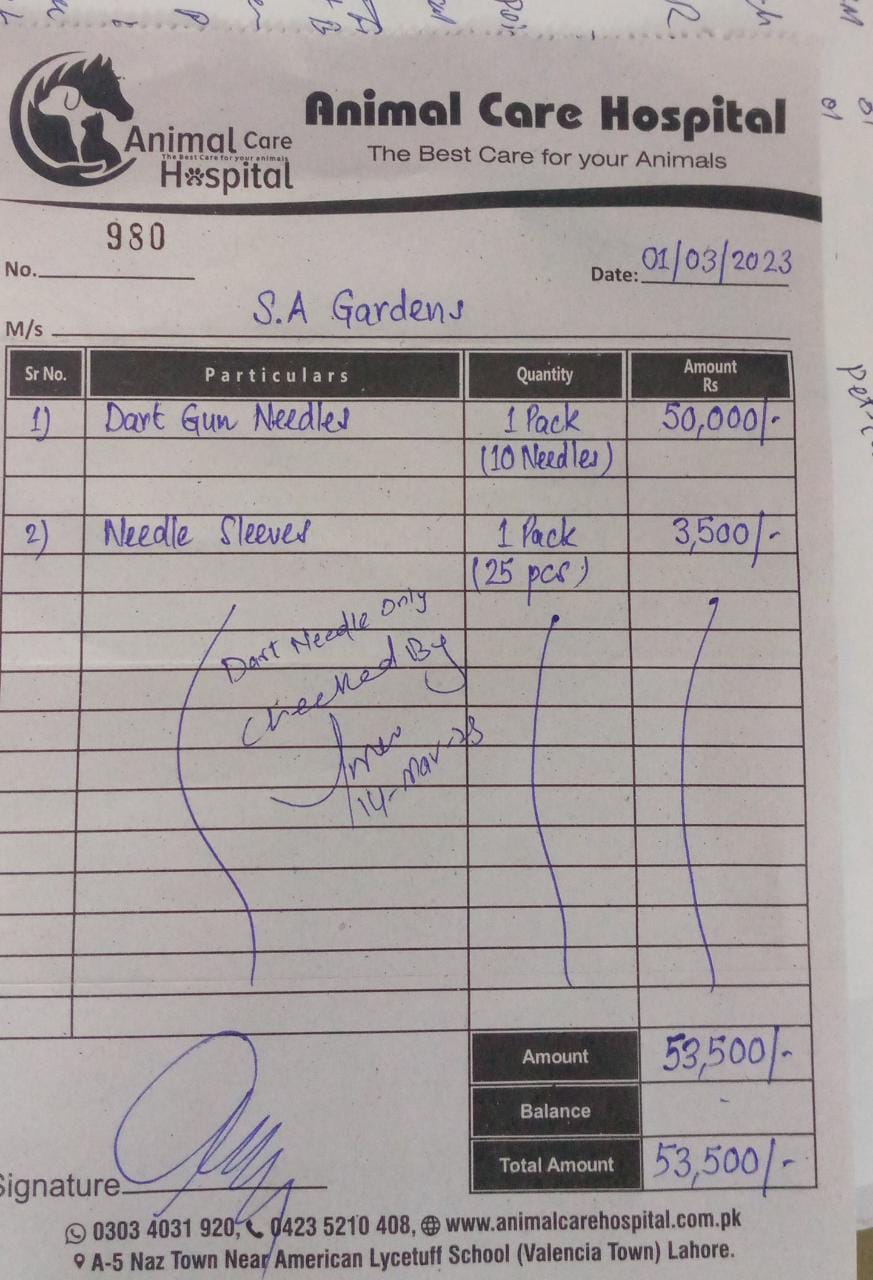 Animal Care
The Best Care for your animals
Hospital
Animal Care Hospital
The Best Care for your Animals
No. 980
Date: 01/03/2023
M/s S.A Gardens
Sr No. Particulars Quantity Amount Rs
1) Dart Gun Needles 1 Pack 50,000/-
(10 Needles)
2) Needle Sleeves 1 Pack 3,500/-
(25 pcs)
Dart Needle Only
Checked By
14-Mar-23
Amount 53,500/-
Balance -
Total Amount 53,500/-
Signature
0303 4031 920, 0423 5210 408, www.animalcarehospital.com.pk
A-5 Naz Town Near American Lycetuff School (Valencia Town) Lahore.